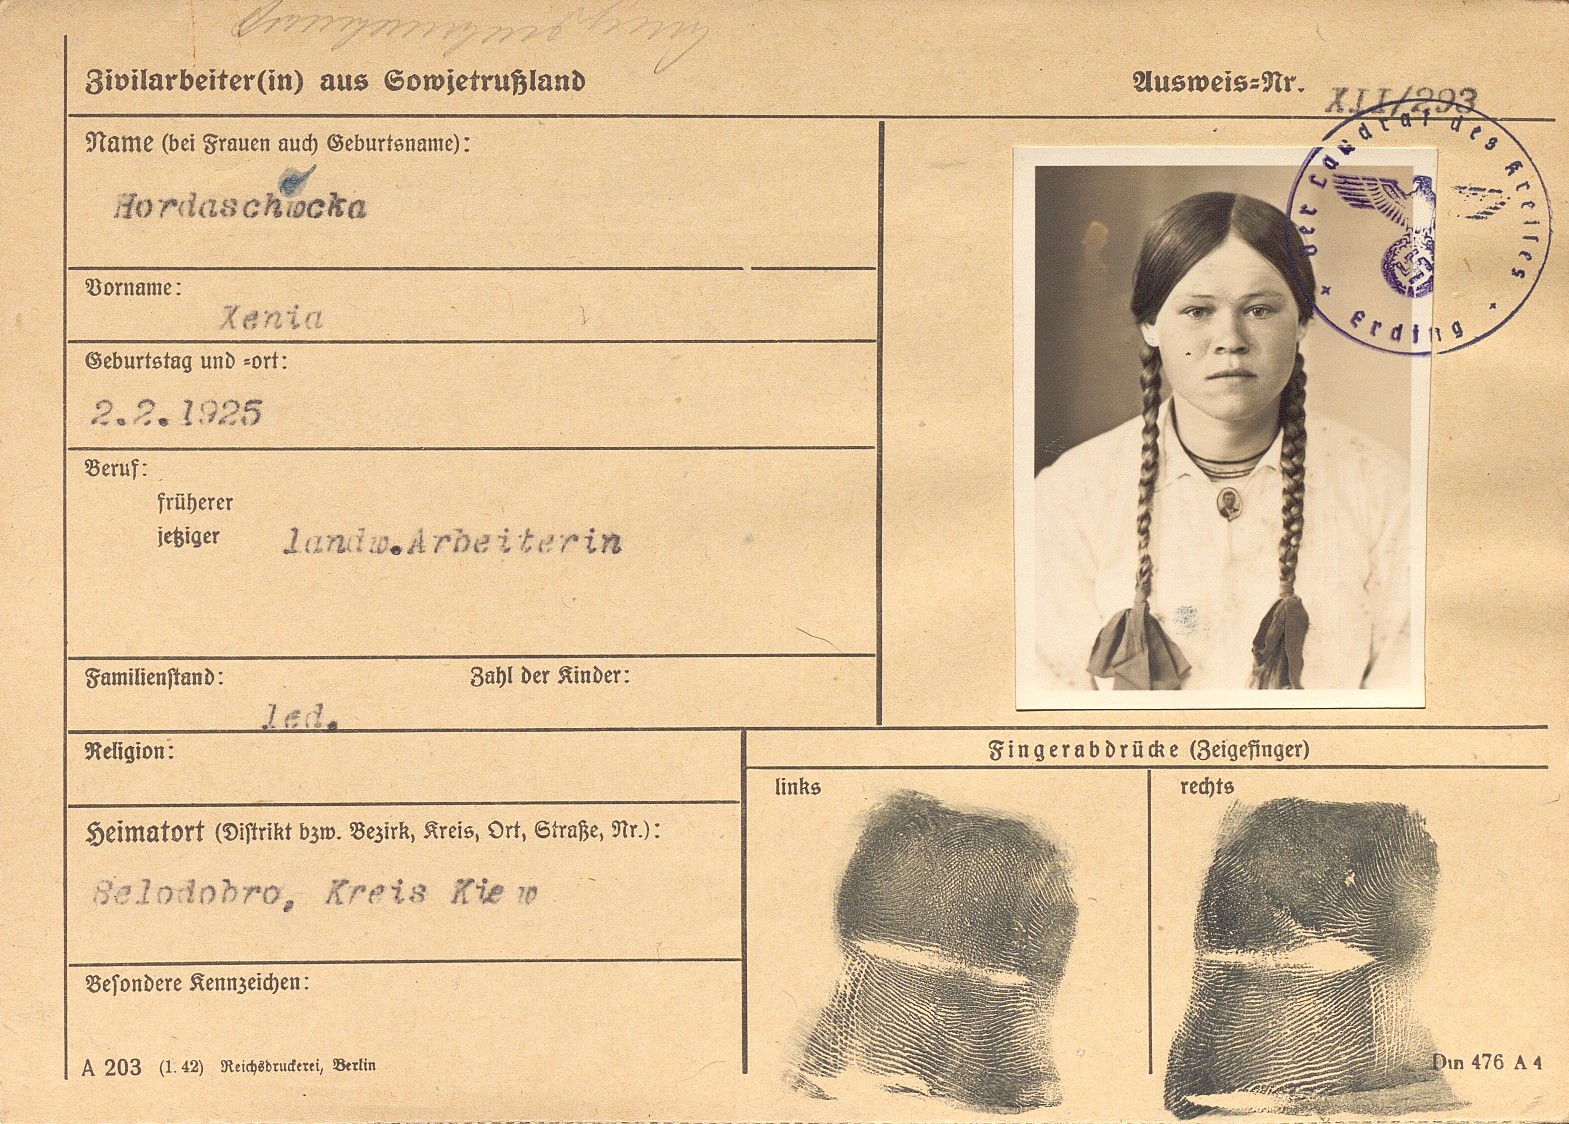 Zivilarbeiter(in) aus Sowjetrußland
Ausweis=Nr. XII/293
Name (bei Frauen auch Geburtsname):
Hordaschwcka
Vorname:
Xenia
Geburtstag und =ort:
2.2.1925
Beruf:
früherer
jetziger landw.Arbeiterin
Familienstand: Zahl der Kinder:
led.
Religion:
Heimatort (Distrikt bzw. Bezirk, Kreis, Ort, Straße, Nr.):
Belodobro, Kreis Kiew
Besondere Kennzeichen:
A 203 (1. 42) Reichsdruckerei, Berlin
Der Landrat des Kreises
* Erding *
Fingerabdrücke (Zeigefinger)
links
rechts
Din 476 A 4